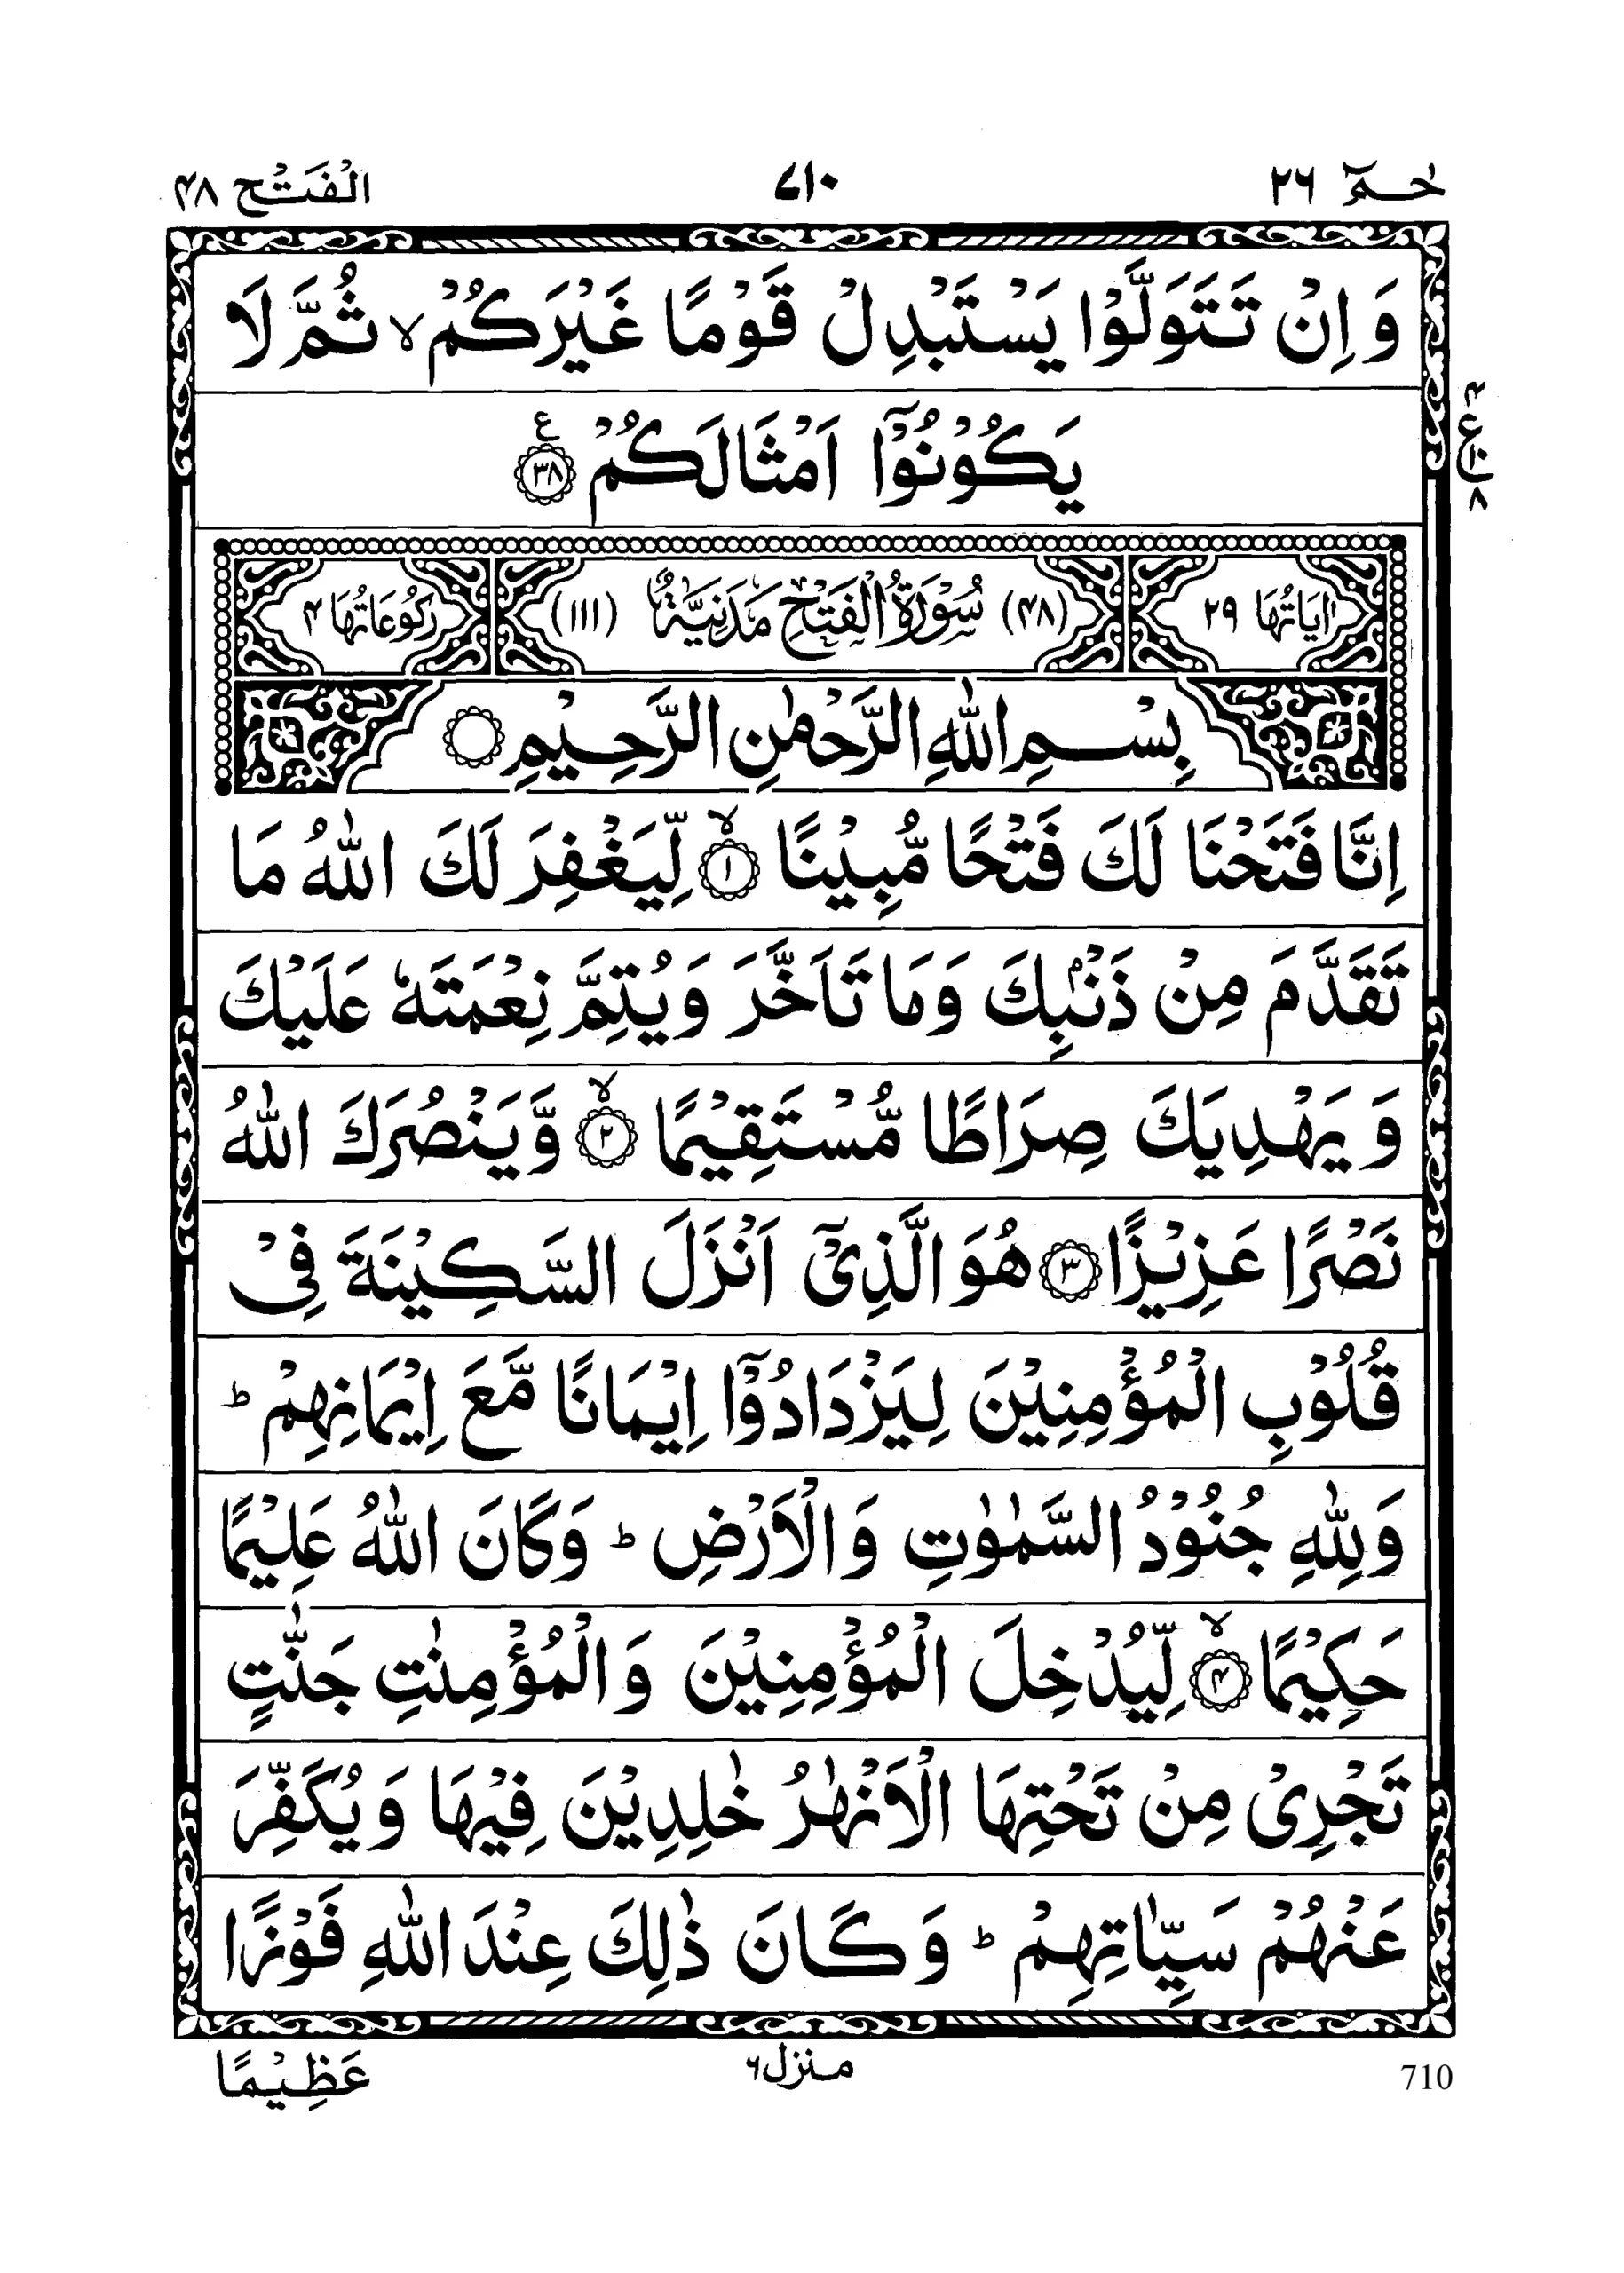 حٰـمٓ ٢٦ ٧١٠ الْفَتْح ٤٨
وَ اِنْ تَتَوَلَّوْا يَسْتَبْدِلْ قَوْمًا غَيْرَكُمْ ۙ ثُمَّ لَا
يَكُوْنُوْۤا اَمْثَالَكُمْ ﴿٣٨﴾ ع
اٰيَاتُهَا ٢٩ (٤٨) سُوْرَةُ الْفَتْحِ مَدَنِيَّةٌ (١١١) رُكُوْعَاتُهَا ٤
بِسْمِ اللّٰهِ الرَّحْمٰنِ الرَّحِيْمِ
اِنَّا فَتَحْنَا لَكَ فَتْحًا مُّبِيْنًا ﴿١﴾ۙ لِّيَغْفِرَ لَكَ اللّٰهُ مَا
تَقَدَّمَ مِنْ ذَنْۢبِكَ وَ مَا تَاَخَّرَ وَ يُتِمَّ نِعْمَتَهٗ عَلَيْكَ
وَ يَهْدِيَكَ صِرَاطًا مُّسْتَقِيْمًا ﴿٢﴾ۙ وَّ يَنْصُرَكَ اللّٰهُ
نَصْرًا عَزِيْزًا ﴿٣﴾ هُوَ الَّذِيْۤ اَنْزَلَ السَّكِيْنَةَ فِيْ
قُلُوْبِ الْمُؤْمِنِيْنَ لِيَزْدَادُوْۤا اِيْمَانًا مَّعَ اِيْمَانِهِمْ ؕ
وَ لِلّٰهِ جُنُوْدُ السَّمٰوٰتِ وَ الْاَرْضِ ؕ وَ كَانَ اللّٰهُ عَلِيْمًا
حَكِيْمًا ﴿٤﴾ۙ لِّيُدْخِلَ الْمُؤْمِنِيْنَ وَ الْمُؤْمِنٰتِ جَنّٰتٍ
تَجْرِيْ مِنْ تَحْتِهَا الْاَنْهٰرُ خٰلِدِيْنَ فِيْهَا وَ يُكَفِّرَ
عَنْهُمْ سَيِّاٰتِهِمْ ؕ وَ كَانَ ذٰلِكَ عِنْدَ اللّٰهِ فَوْزًا
710 منزل ٦ عَظِيْمًا